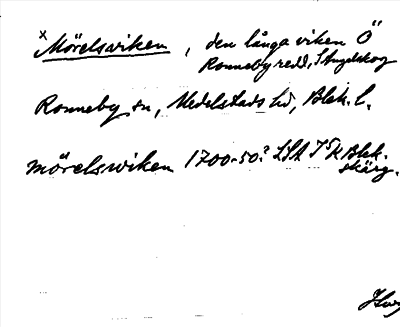 x Mörelsviken, den långa viken Ö
Ronneby redd, S Angelskog
Ronneby sn, Medelstads hd, Blek. l.
mörelswiken 1700-50? LSA J5k Blek.
skärg.